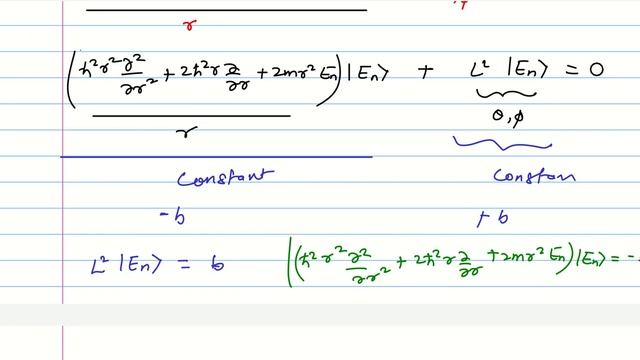 r
(ħ²r² ∂²/∂r² + 2ħ²r ∂/∂r + 2mr² En) |En> + L² |En> = 0
r
θ, φ
Constant Constan
-b + b
L² |En> = b (ħ²r² ∂²/∂r² + 2ħ²r ∂/∂r + 2mr² En) |En> = -